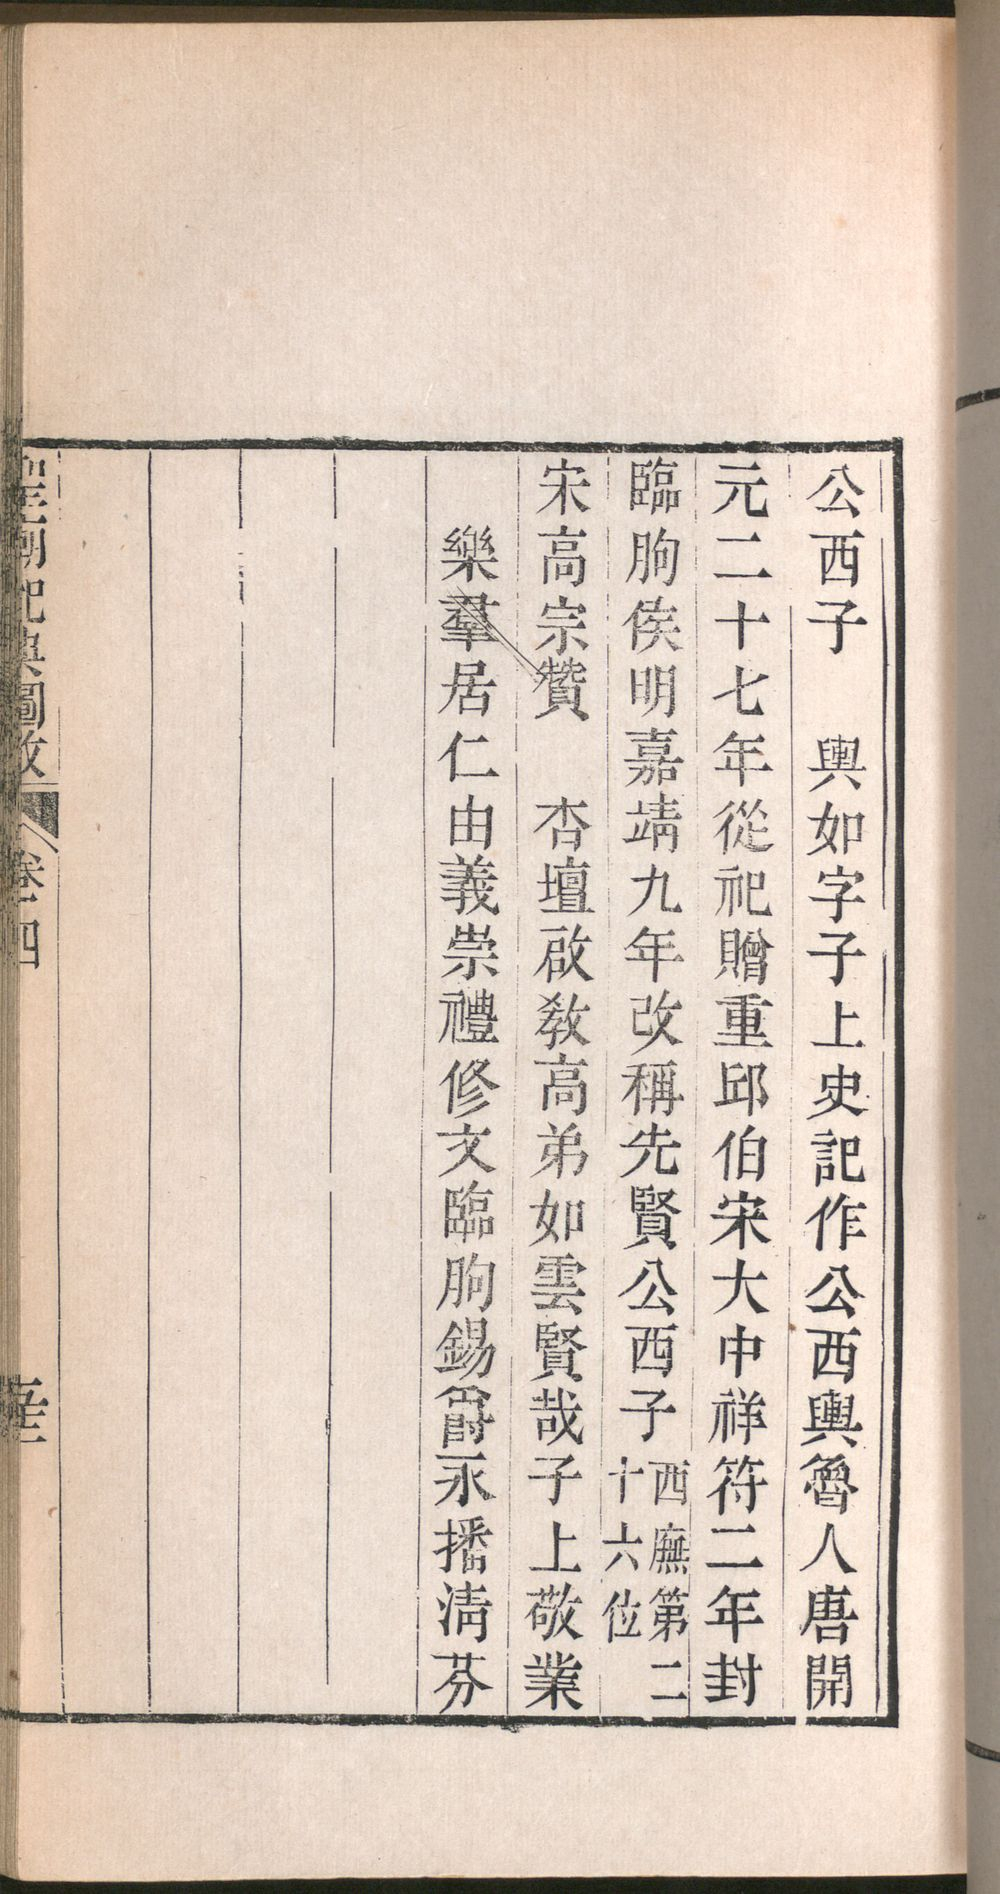 公西子　輿如字子上史記作公西輿魯人唐開
元二十七年從祀贈重邱伯宋大中祥符二年封
臨朐侯明嘉靖九年改稱先賢公西子西廡第二
十六位
宋高宗贊　杏壇啟敎高弟如雲賢哉子上敬業
樂羣居仁由義崇禮修文臨朐錫爵永播淸芬
聖廟祀典圖攷 卷四